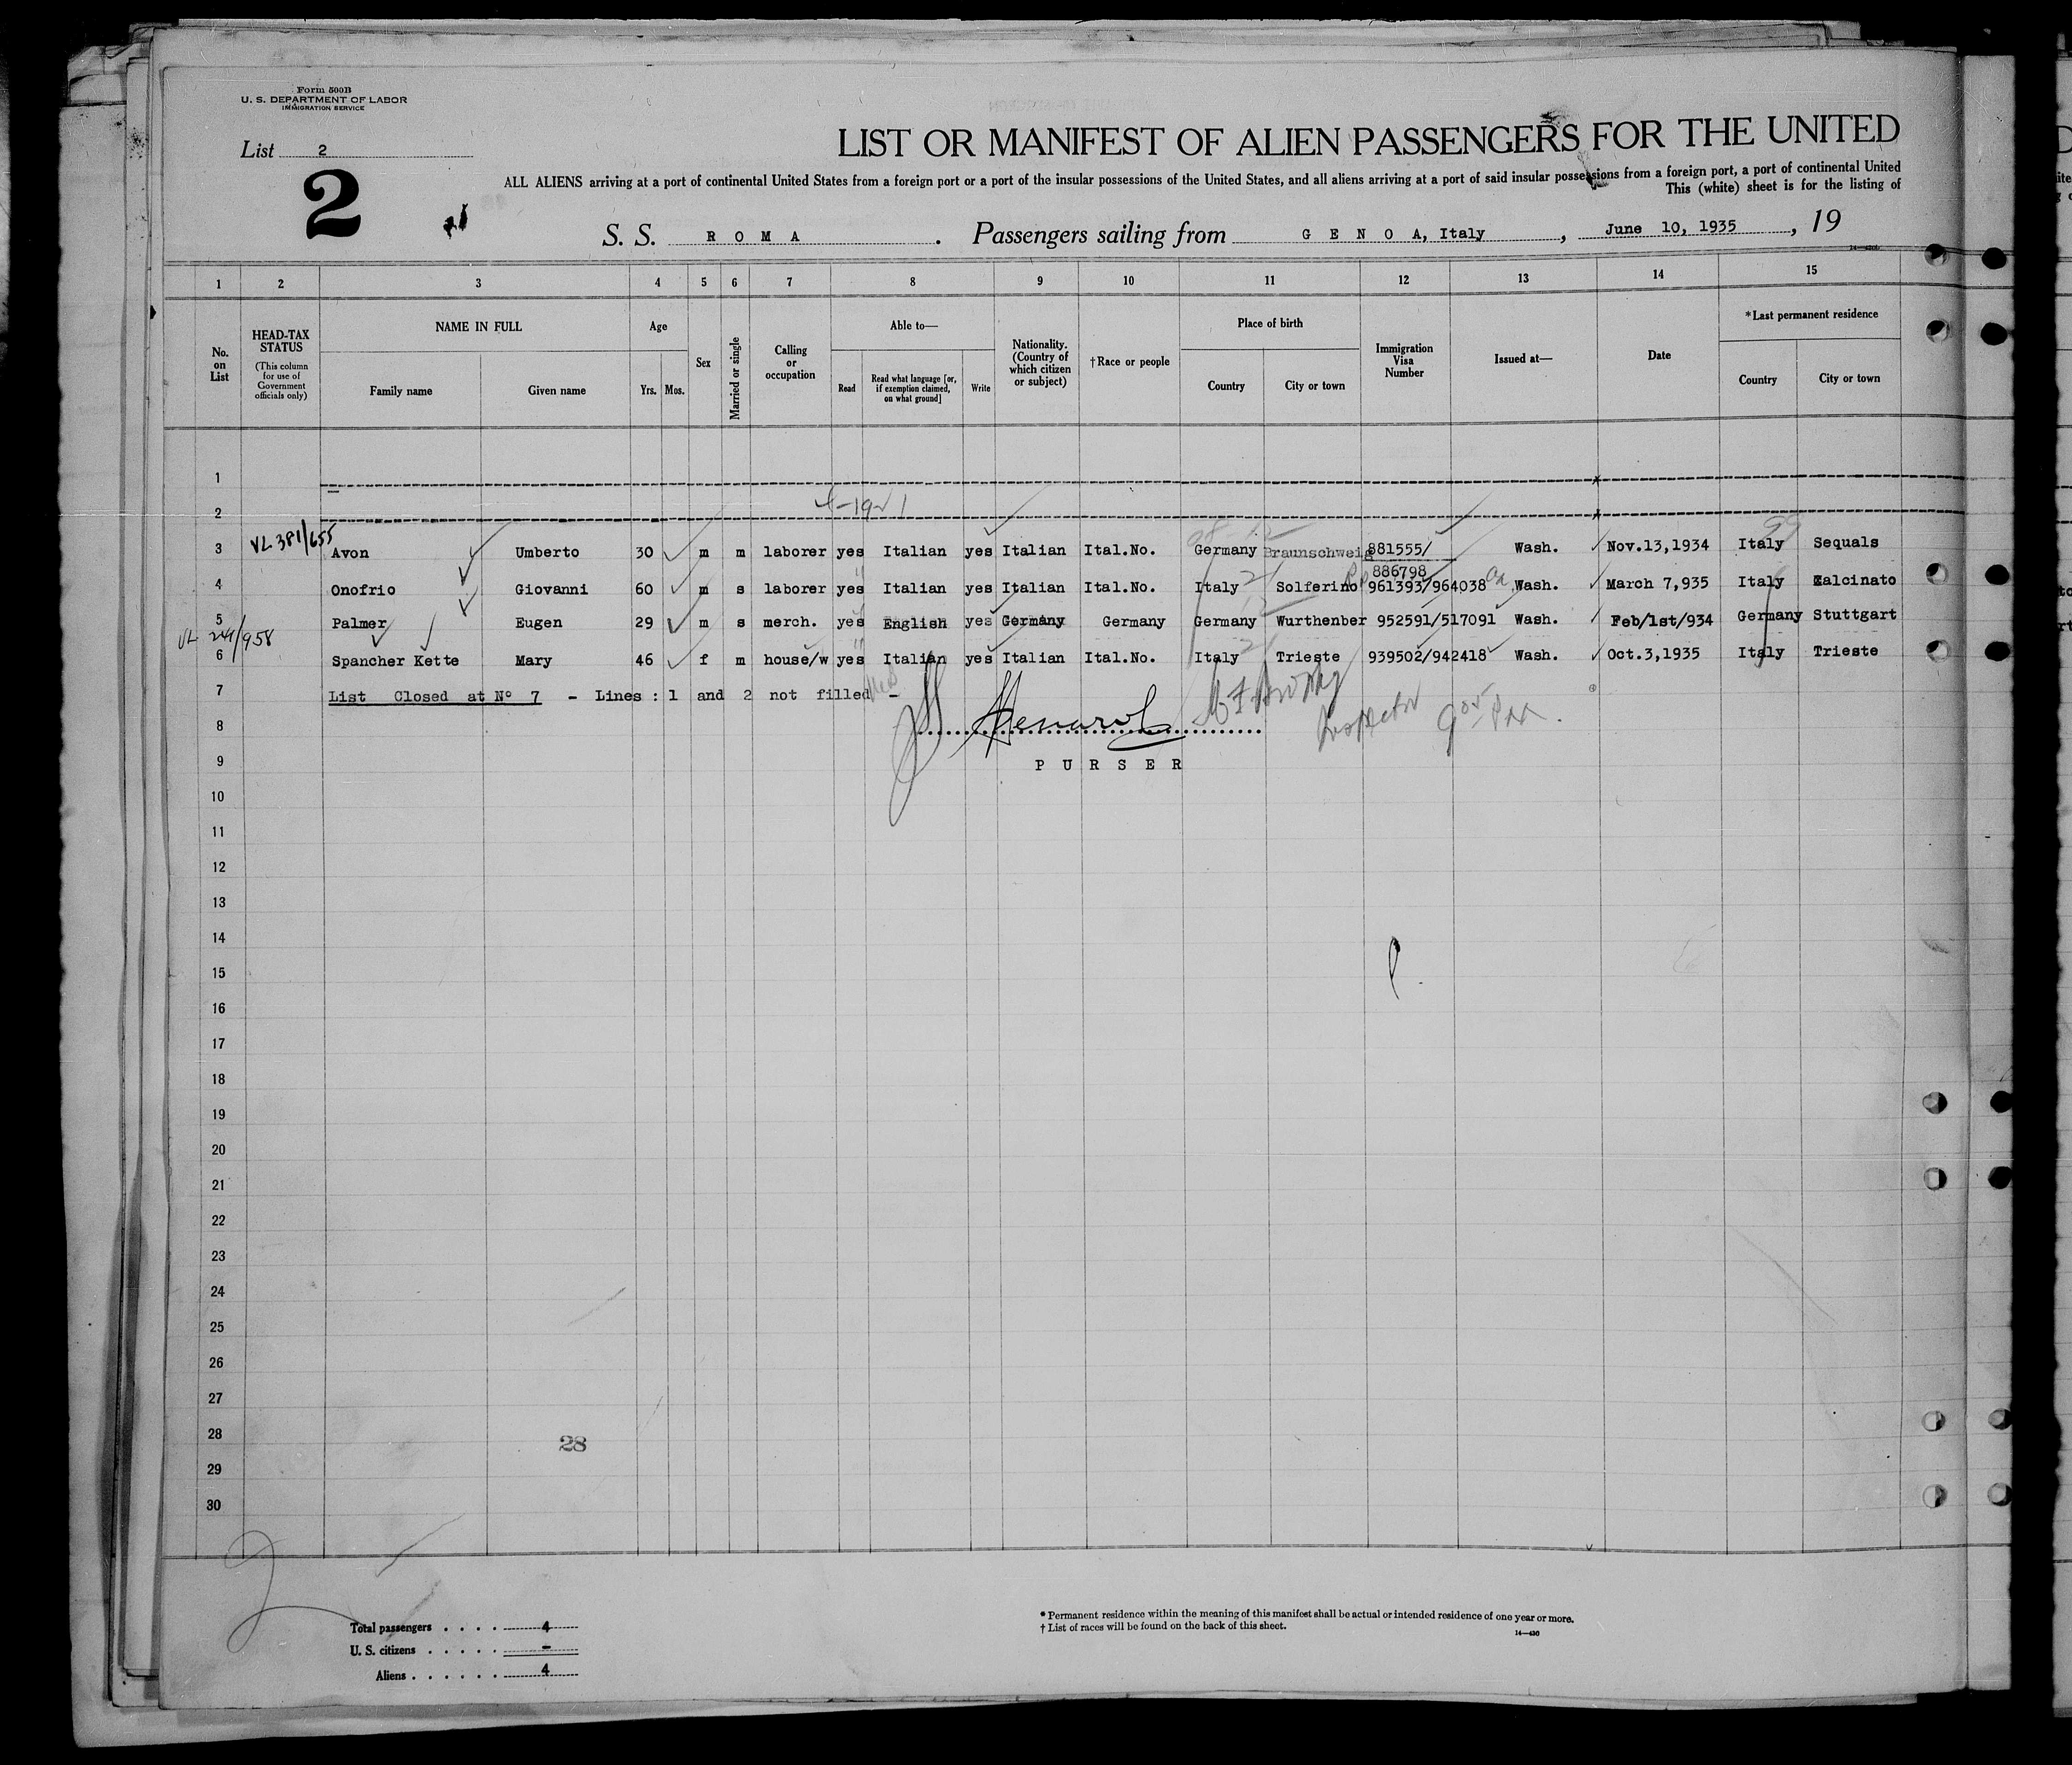 Form 500B
U. S. DEPARTMENT OF LABOR
IMMIGRATION SERVICE
List 2
2
LIST OR MANIFEST OF ALIEN PASSENGERS FOR THE UNITED
ALL ALIENS arriving at a port of continental United States from a foreign port or a port of the insular possessions of the United States, and all aliens arriving at a port of said insular possessions from a foreign port, a port of continental United
This (white) sheet is for the listing of
S. S. R O M A . Passengers sailing from G E N O A, Italy , June 10, 1935 , 19
1 2 3 4 5 6 7 8 9 10 11 12 13 14 15
No. on List
HEAD-TAX STATUS
(This column for use of Government officials only)
NAME IN FULL
Family name Given name
Age
Yrs. Mos.
Sex
Married or single
Calling or occupation
Able to—
Read
Read what language [or, if exemption claimed, on what ground]
Write
Nationality. (Country of which citizen or subject)
†Race or people
Place of birth
Country City or town
Immigration Visa Number
Issued at—
Date
*Last permanent residence
Country City or town
1
2
3 VL 381/655 Avon Umberto 30 m m laborer yes Italian yes Italian Ital.No. Germany Braunschweig 881555/ Wash. Nov.13,1934 Italy Sequals
886798
4 Onofrio Giovanni 60 m s laborer yes Italian yes Italian Ital.No. Italy Solferino 961393/964038 Wash. March 7,935 Italy Calcinato
5 Palmer Eugen 29 m s merch. yes English yes Germany Germany Germany Wurthenber 952591/517091 Wash. Feb/1st/934 Germany Stuttgart
6 Spancher Kette Mary 46 f m house/w yes Italian yes Italian Ital.No. Italy Trieste 939502/942418 Wash. Oct.3,1935 Italy Trieste
7 List Closed at Nº 7 - Lines : 1 and 2 not filled -
8
9 P U R S E R
10
11
12
13
14
15
16
17
18
19
20
21
22
23
24
25
26
27
28
28
29
30
Total passengers . . . . 4
U. S. citizens . . . . . -
Aliens . . . . . . 4
* Permanent residence within the meaning of this manifest shall be actual or intended residence of one year or more.
† List of races will be found on the back of this sheet.
14—430